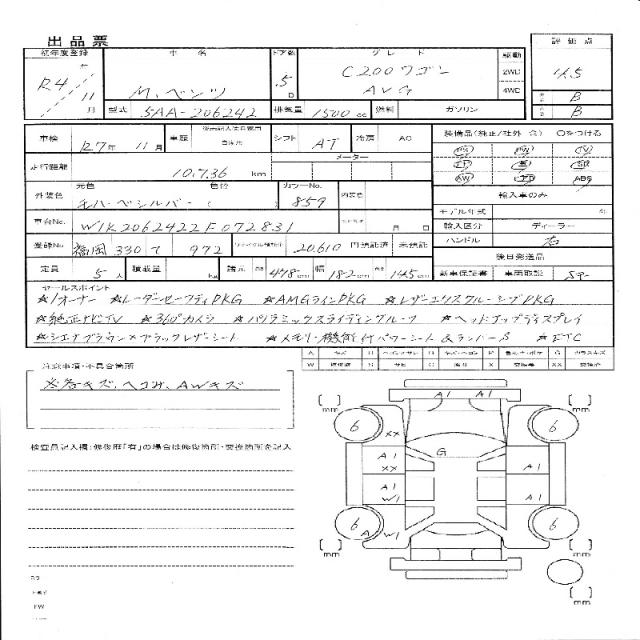 出品票
初年度登録 車名 ドア数 グレード 駆動 評価点
R4年 11月 M.ベンツ 5D C200ワゴン AVG 2WD 4WD 4.5
B
B
型式 5AA-206242 排気量 1500cc 燃料 ガソリン
車検 R7年 11月 車歴 自家用 シフト AT 冷房 AC 装備品(純正/社外 ☆) ○をつける
走行距離 10,736 km メーター
AW ABS
外装色 元色 モハーベシルバー ( 色替 ) カラーNo. 859 内装色 輸入車のみ
モデル年式
車台No. W1K2062422F072831 月 日 輸入区分 ディーラー
登録No. 福岡 330 て 972 20,610 円預託済 未預託 ハンドル 右
後日発送品
定員 5人 積載量 kg 諸元 長さ 478cm 幅 182cm 高さ 145cm 新車保証書 車両取説
セールスポイント
★1オーナー ★レーダーセーフティPKG ★AMGラインPKG ★レザーエクスクルーシブPKG
★純正ナビTV ★360°カメラ ★パノラミックスライディングルーフ ★ヘッドアップディスプレイ
★シエナブラウン×ブラックレザーシート ★メモリー機能付パワーシート&ランバーS ★ETC
注意事項・不具合箇所
※各キズ、ヘコみ、AWキズ
検査員記入欄:修復歴「有」の場合は修復箇所・交換箇所を記入
[ ] mm A1 A1 [ ] mm
6 XX 6
A1 XX G A1
A1 W1 A1
6 A W1 6
[ ] mm [ ] mm
[ ] mm